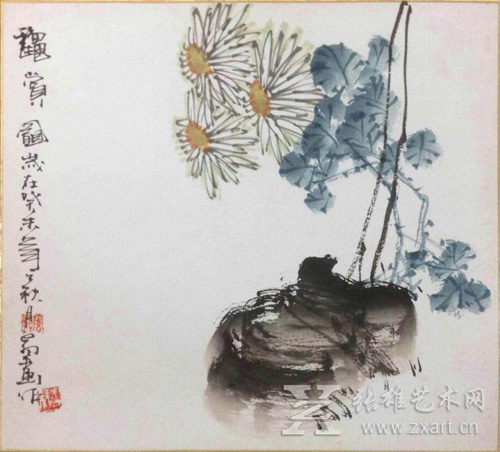 龝賞圖歲在癸未年之秋月畫
张雄艺术网
www.zxart.cn